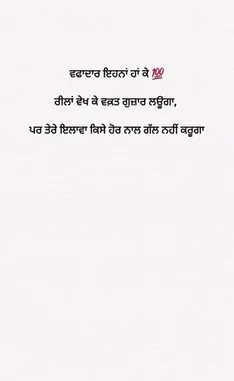 ਵਫਾਦਾਰ ਇਹਨਾਂ ਹਾਂ ਕੇ 💯
ਰੀਲਾਂ ਵੇਖ ਕੇ ਵਕ਼ਤ ਗੁਜ਼ਾਰ ਲਊਗਾ,
ਪਰ ਤੇਰੇ ਇਲਾਵਾ ਕਿਸੇ ਹੋਰ ਨਾਲ ਗੱਲ ਨਹੀਂ ਕਰੂਗਾ